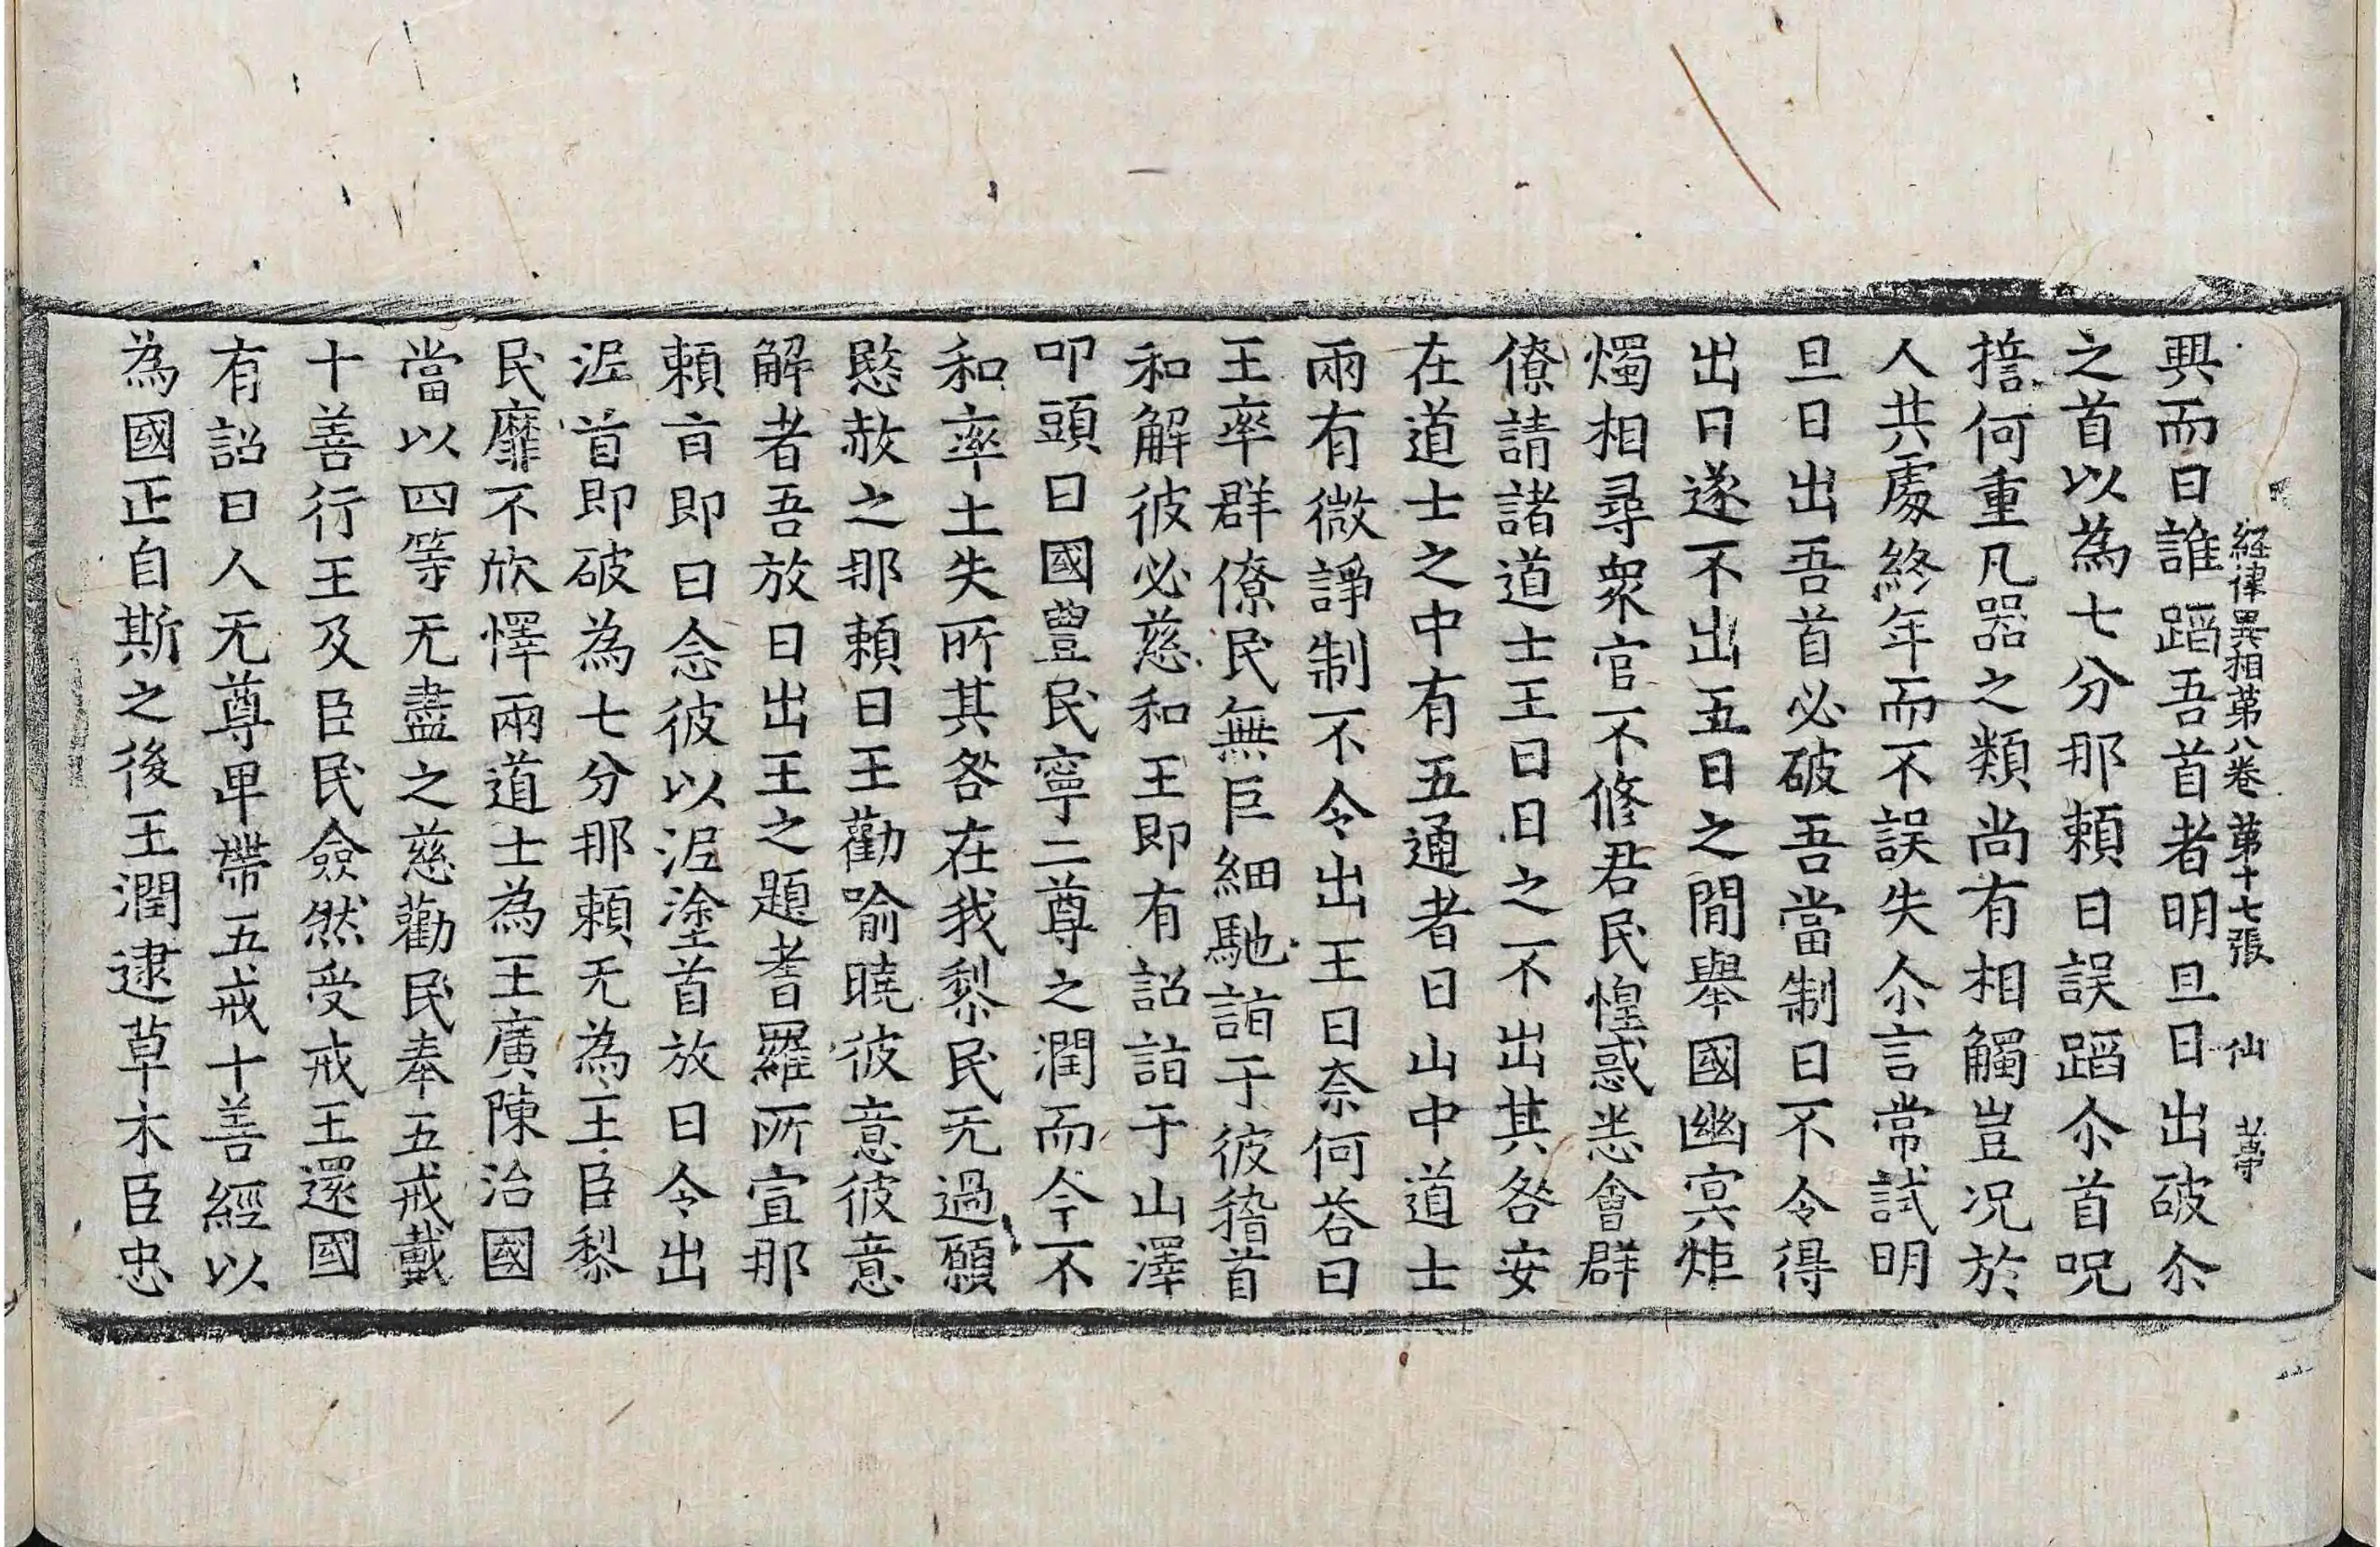 経律異相苐八卷 苐十七張 仙
興而曰誰蹈吾首者明旦日出破尒
之首以為七分那頼曰誤蹈尒首呪
誓何重凡器之類尚有相觸豈况於
人共處終年而不誤失尒言常試明
旦日出吾首必破吾當制日不令得
出日遂不出五日之間舉國幽㝠炬
燭相尋衆官不修君民惶惑悉會群
僚請諸道士王曰日之不出其咎安
在道士之中有五通者曰山中道士
兩有微諍制不令出王曰奈何荅曰
王率群僚民無巨細馳詣于彼稽首
和解彼必慈和王即有詔詣于山澤
叩頭曰國豊民寧二尊之潤而今不
和率土失所其咎在我黎民无過願
愍赦之那頼曰王勸喻曉彼意彼意
解者吾放日出王之題耆羅所宣那
頼㫖即曰念彼以泥塗首放日令出
泥首即破為七分那頼无為王臣黎
民靡不欣懌兩道士為王廣陳治國
當以四等无盡之慈勸民奉五戒戴
十善行王及臣民僉然受戒王還國
有詔曰人无尊卑帶五戒十善經以
為國正自斯之後王潤逮草木臣忠